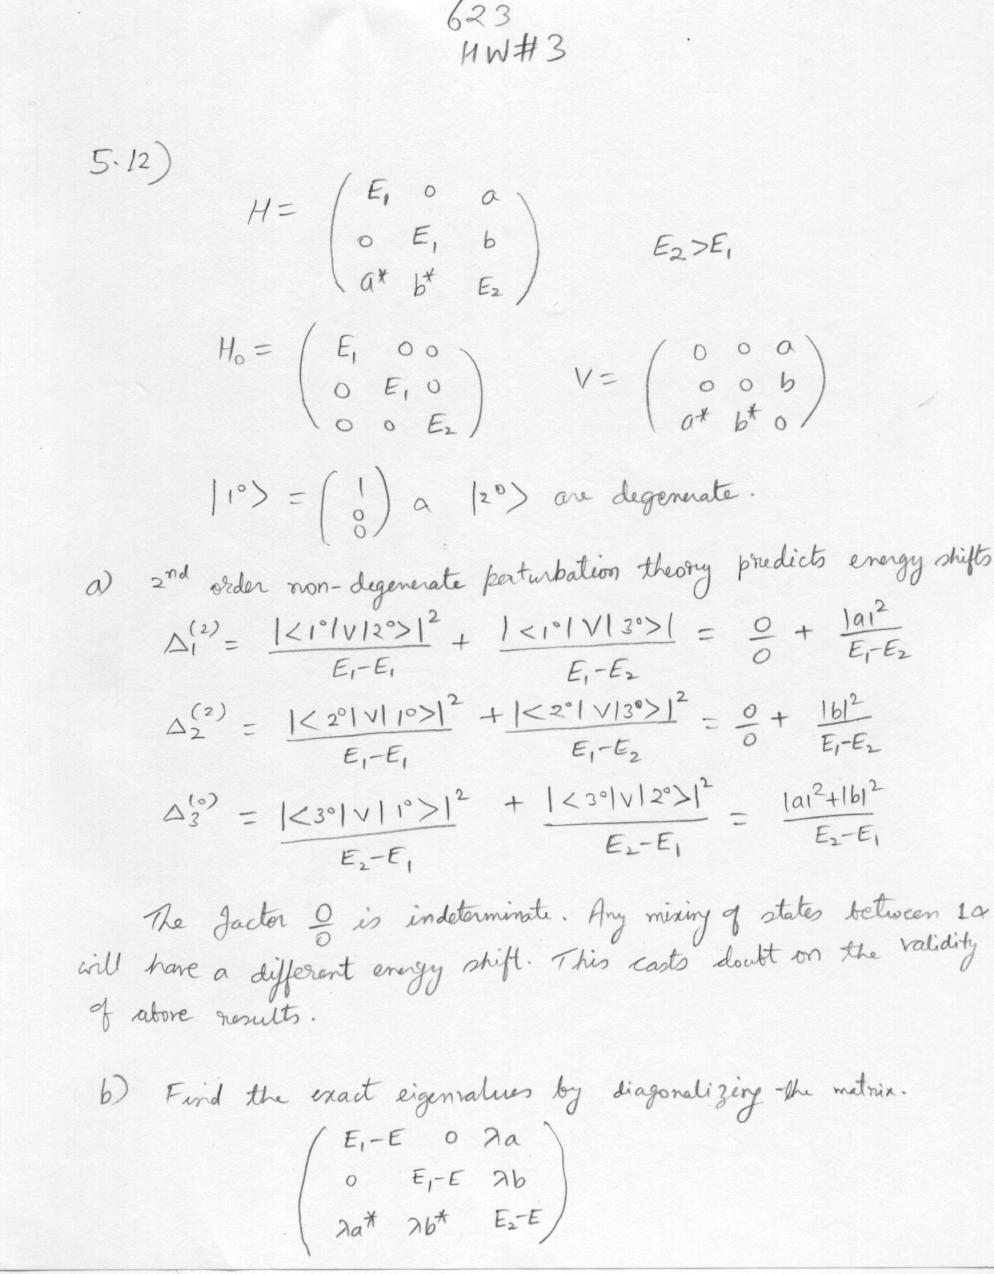 623
HW#3
5.12)
H = ( E₁ 0 a
0 E₁ b
a* b* E₂ ) E₂>E₁
H₀ = ( E₁ 0 0
0 E₁ 0
0 0 E₂ ) V = ( 0 0 a
0 0 b
a* b* 0 )
|1⁰> = ( 1
0
0 ) a |2⁰> are degenerate.
a) 2nd order non-degenerate perturbation theory predicts energy shifts
Δ₁⁽²⁾ = |<1⁰|V|2⁰>|² / E₁-E₁ + |<1⁰|V|3⁰>| / E₁-E₂ = 0/0 + |a|² / E₁-E₂
Δ₂⁽²⁾ = |<2⁰|V|1⁰>|² / E₁-E₁ + |<2⁰|V|3⁰>|² / E₁-E₂ = 0/0 + |b|² / E₁-E₂
Δ₃⁽⁰⁾ = |<3⁰|V|1⁰>|² / E₂-E₁ + |<3⁰|V|2⁰>|² / E₂-E₁ = |a|²+|b|² / E₂-E₁
The factor 0/0 is indeterminate. Any mixing of states between 1
will have a different energy shift. This casts doubt on the validity
of above results.
b) Find the exact eigenvalues by diagonalizing the matrix.
( E₁-E 0 λa
0 E₁-E λb
λa* λb* E₂-E )